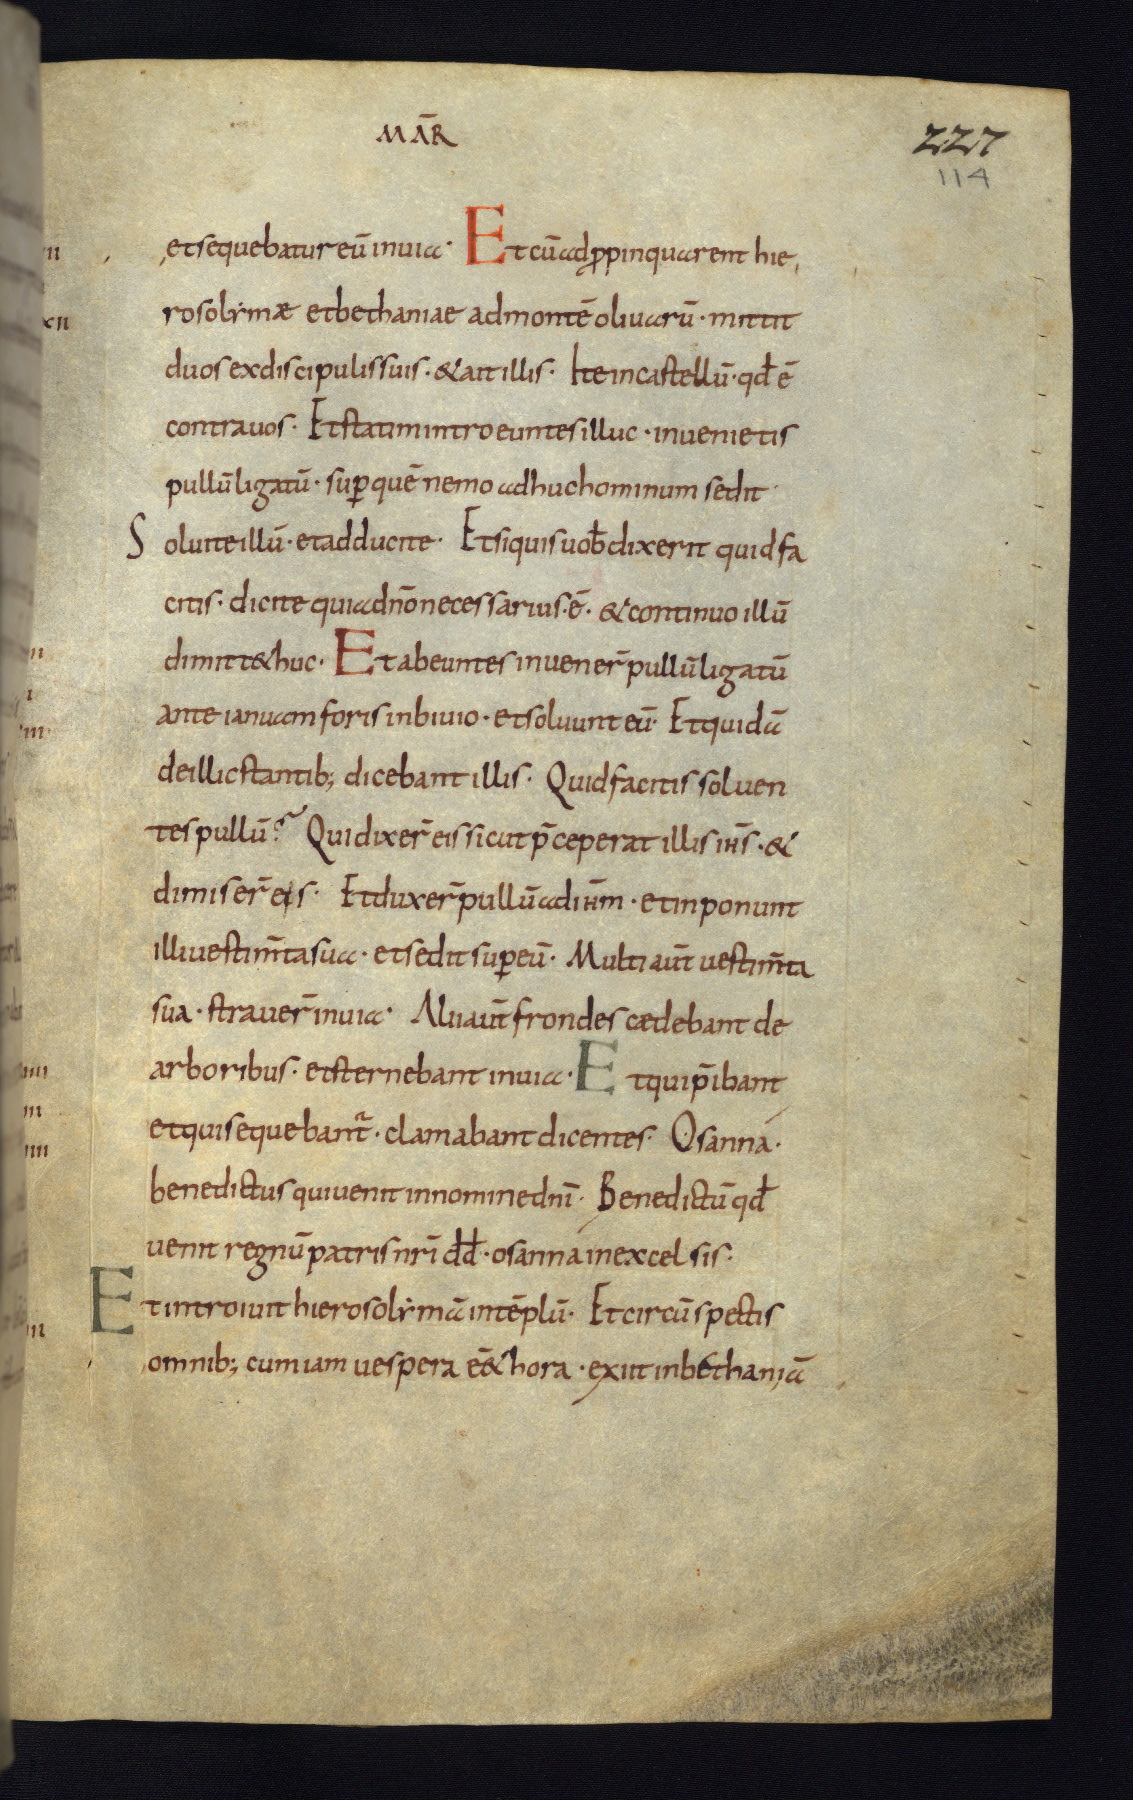 MAR̄
227
114
et sequebatur eū in via· Et cū adp̱pinquarent hie
rosolẏmæ et bethaniae ad montē olivarū· mittit
duos ex discipulis suis· & ait illis· Ite in castellū· qđ ē
contra vos· Et statim introeuntes illuc· invenietis
pullū ligatū· sup̱ quē nemo adhuc hominum sedit·
Solvite illū· et adducite· Et si quis vob̄ dixerit quid fa
citis· dicite quia dn̄o necessarius· ē· & continuo illū
dimitt& huc· Et abeuntes invener̄ pullū ligatū
ante ianuam foris in bivio· et solvunt eū· Et quidā
de illic stantib; dicebant illis· Quid facitis solven
tes pullū? Qui dixer̄ eis sicut p̄ceperat illis ih̄s· &
dimiser̄ eis· Et duxer̄ pullū ad ih̄m· et inponunt
illi vestim̄ta sua· et sedit sup̱ eū· Multi aut̄ vestim̄ta
sua· straver̄ in via· Alii aut̄ frondes cædebant de
arboribus· et sternebant in via· Et qui p̄ibant
et qui sequebant̄· clamabant dicentes· Osanna·
benedictus qui venit in nomine dn̄i· Benedictū qđ
venit regnū patris nr̄i dd̄· osanna in excelsis·
Et introivit hierosolẏmā in tēplū· Et circūspectis
omnib; cum iam vespera ēē& hora· exiit in bethaniā